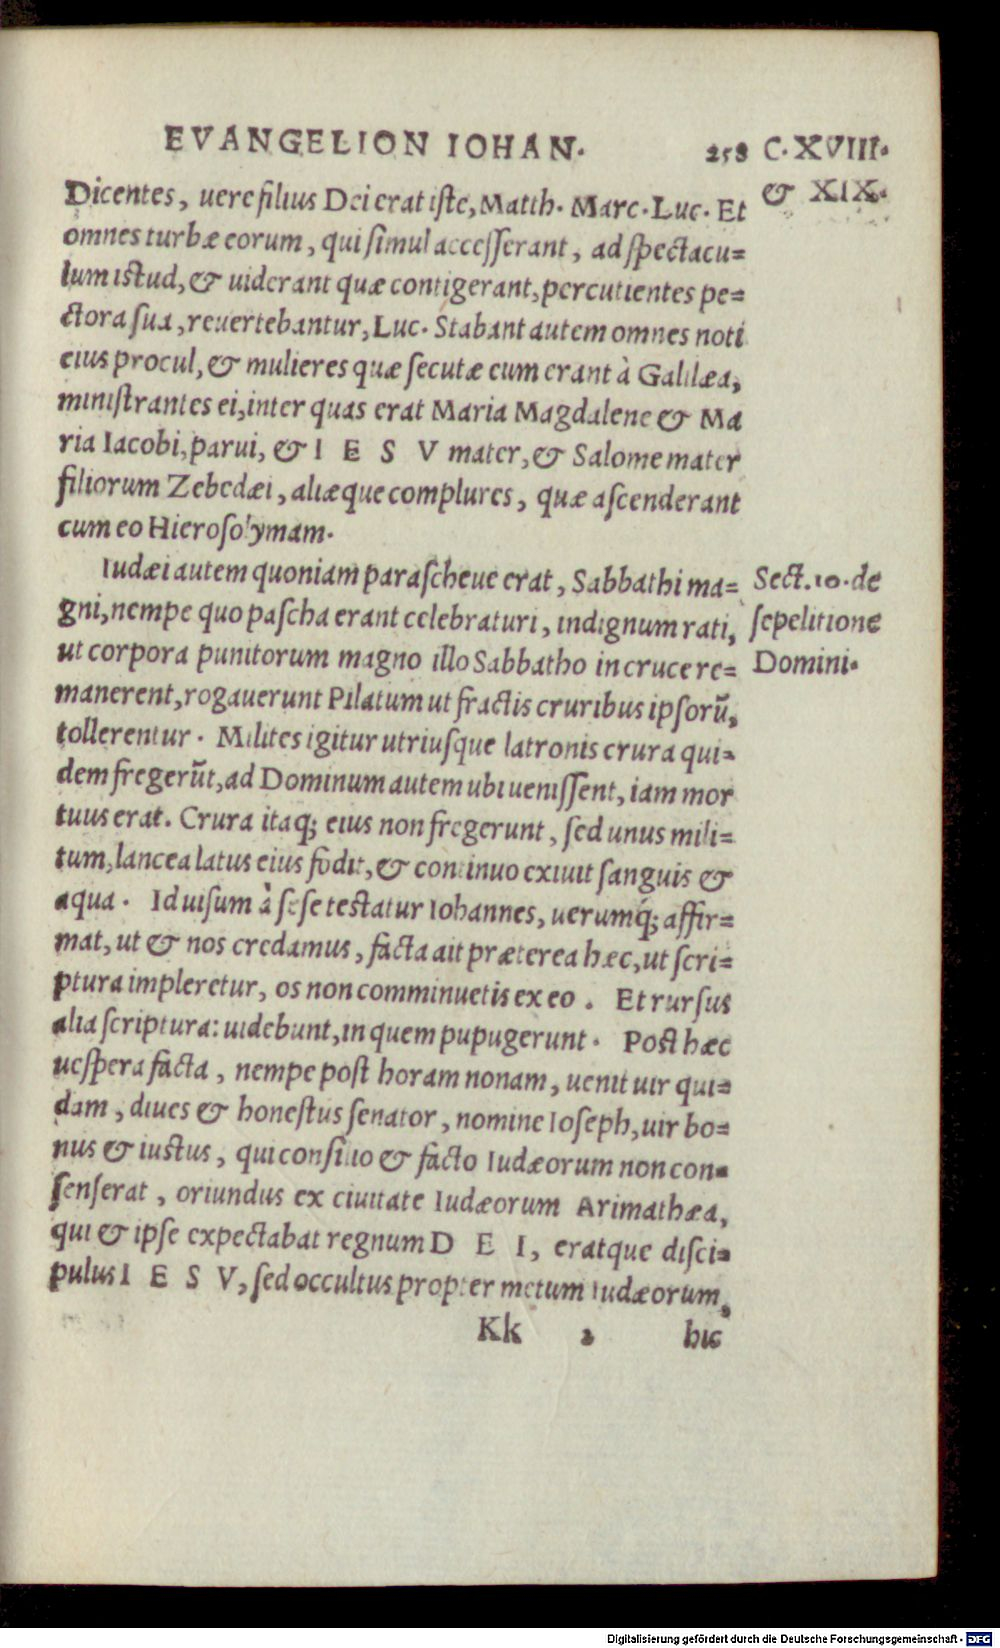 EVANGELION IOHAN. 258 C. XVIII.
& XIX.
Dicentes, uere filius Dei erat iste, Matth. Marc. Luc. Et
omnes turbæ eorum, qui simul accesserant, ad spectacu=
lum istud, & uiderant quæ contigerant, percutientes pe=
ctora sua, reuertebantur, Luc. Stabant autem omnes noti
eius procul, & mulieres quæ secutæ eum erant à Galilæa,
ministrantes ei, inter quas erat Maria Magdalene & Ma
ria Iacobi, parui, & I E S V mater, & Salome mater
filiorum Zebedæi, aliæque complures, quæ ascenderant
cum eo Hierosolymam.
Iudæi autem quoniam parascheue erat, Sabbathi ma=
gni, nempe quo pascha erant celebraturi, indignum rati,
ut corpora punitorum magno illo Sabbatho in cruce re=
manerent, rogauerunt Pilatum ut fractis cruribus ipsorũ,
tollerentur. Milites igitur utriusque latronis crura qui=
dem fregerũt, ad Dominum autem ubi uenissent, iam mor
tuus erat. Crura itaq; eius non fregerunt, sed unus mili=
tum, lancea latus eius fodit, & continuo exiuit sanguis &
aqua. Id uisum à sese testatur Iohannes, uerumq́; affir=
mat, ut & nos credamus, facta ait præterea hæc, ut scri=
ptura impleretur, os non comminuetis ex eo. Et rursus
alia scriptura: uidebunt, in quem pupugerunt. Post hæc
uespera facta, nempe post horam nonam, uenit uir qui=
dam, diues & honestus senator, nomine Ioseph, uir bo=
nus & iustus, qui consilio & facto Iudæorum non con=
senserat, oriundus ex ciuitate Iudæorum Arimathæa,
qui & ipse expectabat regnum D E I, eratque disci=
pulus I E S V, sed occultus propter metum Iudæorum,
Kk 2 hic
Sect. 10. de
sepelitione
Domini.
Digitalisierung gefördert durch die Deutsche Forschungsgemeinschaft - DFG